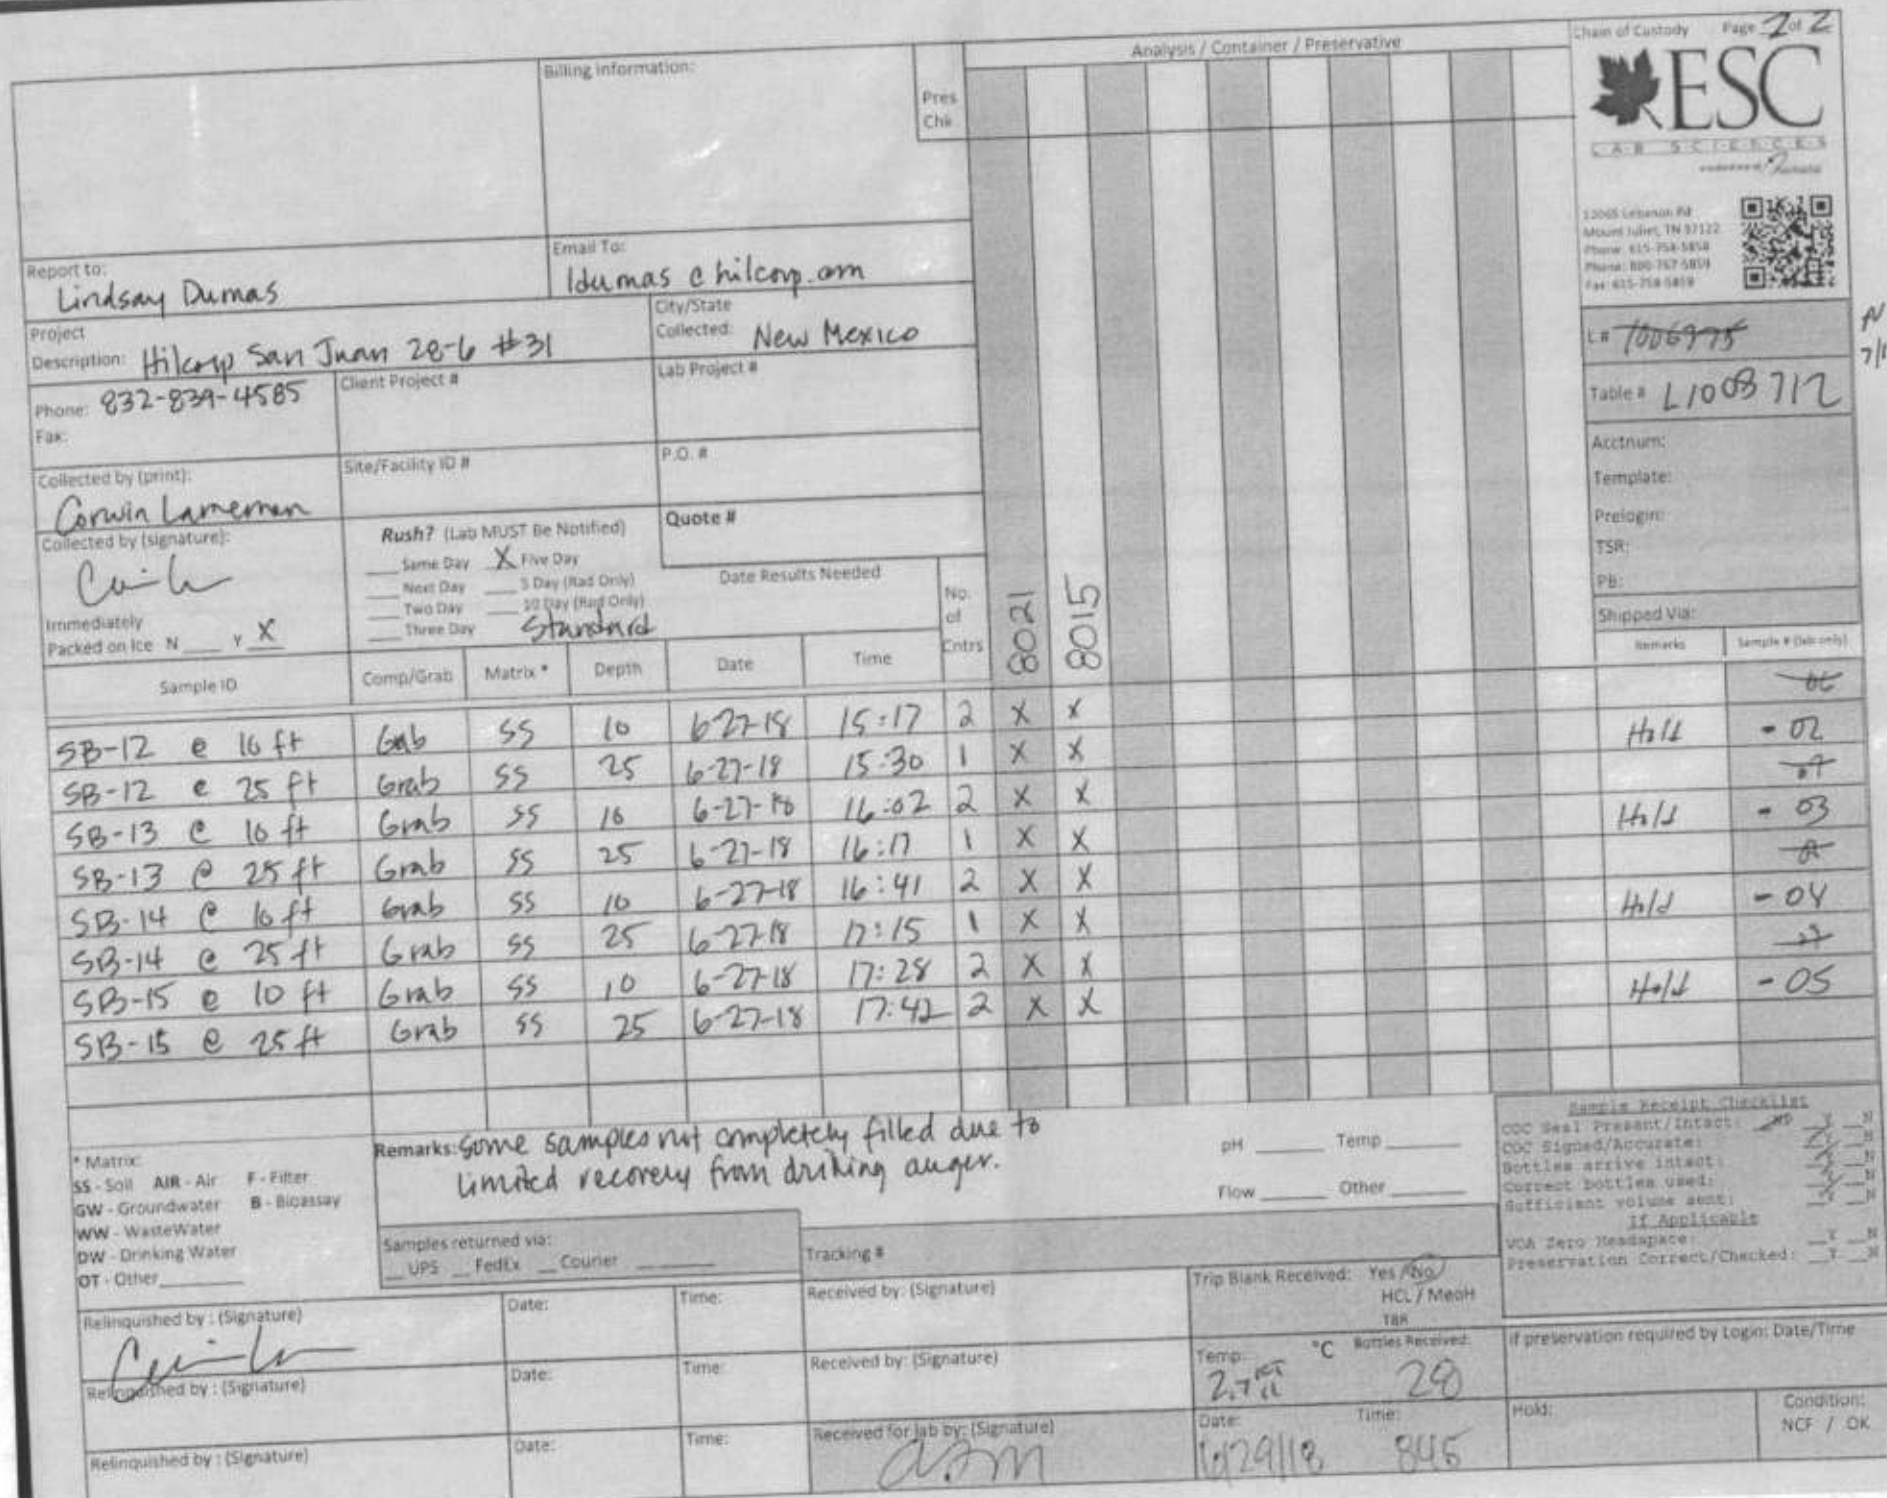 Chain of Custody Page 2 of 2
Analysis / Container / Preservative
Billing Information:
Pres
Chk
ESC
L·A·B S·C·I·E·N·C·E·S
12065 Lebanon Rd
Mount Juliet, TN 37122
Phone: 615-758-5858
Phone: 800-767-5859
Fax: 615-758-5859
Report to:
Lindsay Dumas
Email To:
ldumas @ hilcorp.com
Project
Description: Hilcorp San Juan 28-6 #31
City/State
Collected: New Mexico
L#
Table # L1008712
Phone: 832-839-4585
Fax:
Client Project #
Lab Project #
Acctnum:
Template:
Prelogin:
TSR:
PB:
Shipped Via:
Collected by (print):
Corwin Lameman
Site/Facility ID #
P.O. #
Collected by (signature):
Rush? (Lab MUST Be Notified)
Same Day X Five Day
Next Day 5 Day (Rad Only)
Two Day 10 Day (Rad Only)
Three Day Standard
Quote #
Date Results Needed
Immediately
Packed on Ice N Y X
No.
of
Cntrs
8021
8015
Sample ID Comp/Grab Matrix * Depth Date Time Remarks Sample # (lab only)
SB-12 @ 10 ft Grab SS 10 6-27-18 15:17 2 X X
SB-12 @ 25 ft Grab SS 25 6-27-18 15:30 1 X X Hold - 02
SB-13 @ 10 ft Grab SS 10 6-27-18 16:02 2 X X
SB-13 @ 25 ft Grab SS 25 6-27-18 16:17 1 X X Hold - 03
SB-14 @ 10 ft Grab SS 10 6-27-18 16:41 2 X X
SB-14 @ 25 ft Grab SS 25 6-27-18 17:15 1 X X Hold - 04
SB-15 @ 10 ft Grab SS 10 6-27-18 17:28 2 X X
SB-15 @ 25 ft Grab SS 25 6-27-18 17:42 2 X X Hold - 05
* Matrix:
SS - Soil AIR - Air F - Filter
GW - Groundwater B - Bioassay
WW - WasteWater
DW - Drinking Water
OT - Other
Remarks: Some samples not completely filled due to
limited recovery from drilling auger.
pH Temp
Flow Other
Sample Receipt Checklist
COC Seal Present/Intact: NP Y N
COC Signed/Accurate: Y N
Bottles arrive intact: Y N
Correct bottles used: Y N
Sufficient volume sent: Y N
If Applicable
VOA Zero Headspace: Y N
Preservation Correct/Checked: Y N
Samples returned via:
UPS FedEx Courier
Tracking #
Relinquished by : (Signature)
Date:
Time:
Received by: (Signature)
Trip Blank Received: Yes / No
HCL / MeoH
TBR
Relinquished by : (Signature)
Date:
Time:
Received by: (Signature)
Temp: °C Bottles Received:
2.7 28
If preservation required by Login: Date/Time
Relinquished by : (Signature)
Date:
Time:
Received for lab by: (Signature)
Date: Time:
6/29/18 845
Hold:
Condition:
NCF / OK